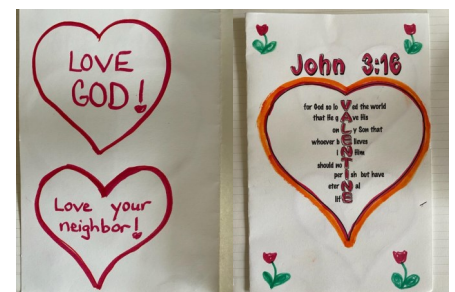 LOVE
GOD!
Love your
neighbor!
John 3:16
for God so loVed the world
that He gAve His
onLy Son that
whoever bElieves
iN Him
should noT
perIsh but have
eterNal
lifE